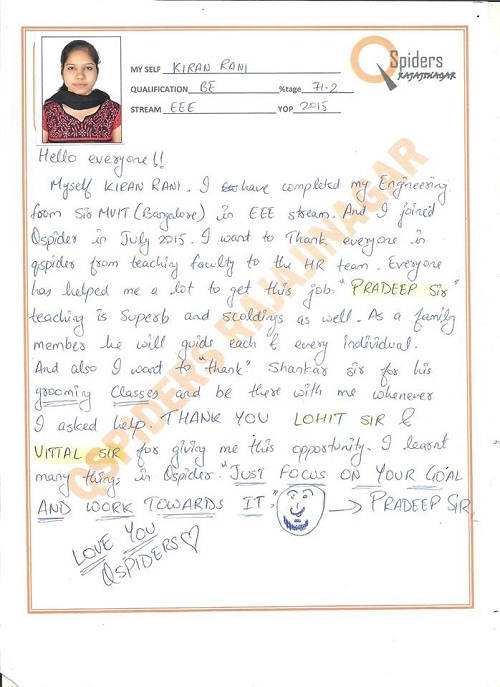 QSpiders
RAJAJINAGAR
MY SELF KIRAN RANI
QUALIFICATION BE %tage 71.2
STREAM EEE YOP 2015
Hello everyone!!
Myself KIRAN RANI. I have completed my Engineering
from Sir MVIT (Bangalore) in EEE stream. And I joined
Qspider in July 2015. I want to Thank everyone in
qspider from teaching faculty to the HR team. Everyone
has helped me a lot to get this job. "PRADEEP Sir"
teaching is Superb and scoldings as well. As a family
member he will guide each & every individual.
And also I want to "thank" Shankar sir for his
grooming Classes and be there with me whenever
I asked help. THANK YOU LOHIT SIR &
VITTAL SIR for giving me this opportunity. I learnt
many things in Qspider. "JUST FOCUS ON YOUR GOAL
AND WORK TOWARDS IT." → PRADEEP SIR
LOVE YOU
QSPIDERS♡
QSPIDERS RAJAJINAGAR